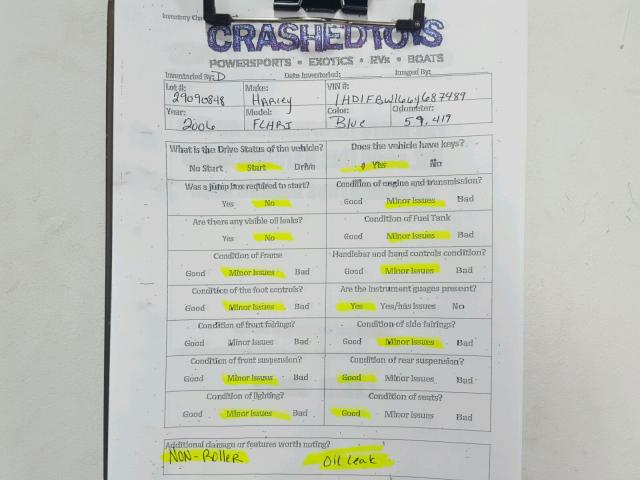 CRASHEDTOYS
POWERSPORTS • EXOTICS • RVs • BOATS
Inventoried By: D Date Inventoried: Imaged By:
Lot #: Make: VIN #:
29090848 HARLEY
Year: Model: Color: Odometer:
2006 FLHRI Blue 59,419
What is the Drive Status of the vehicle? Does the vehicle have keys?
No Start Start Drive Yes No
Was a jump box required to start? Condition of engine and transmission?
Yes No Good Minor Issues Bad
Are there any visible oil leaks? Condition of Fuel Tank
Yes No Good Minor Issues Bad
Condition of Frame Handlebar and hand controls condition?
Good Minor Issues Bad Good Minor Issues Bad
Condition of the foot controls? Are the instrument guages present?
Good Minor Issues Bad Yes Yes/has issues No
Condition of front fairings? Condition of side fairings?
Good Minor Issues Bad Good Minor Issues Bad
Condition of front suspension? Condition of rear suspension?
Good Minor Issues Bad Good Minor Issues Bad
Condition of lighting? Condition of seats?
Good Minor Issues Bad Good Minor Issues Bad
Additional damage or features worth noting?
NON-ROLLER Oil Leak